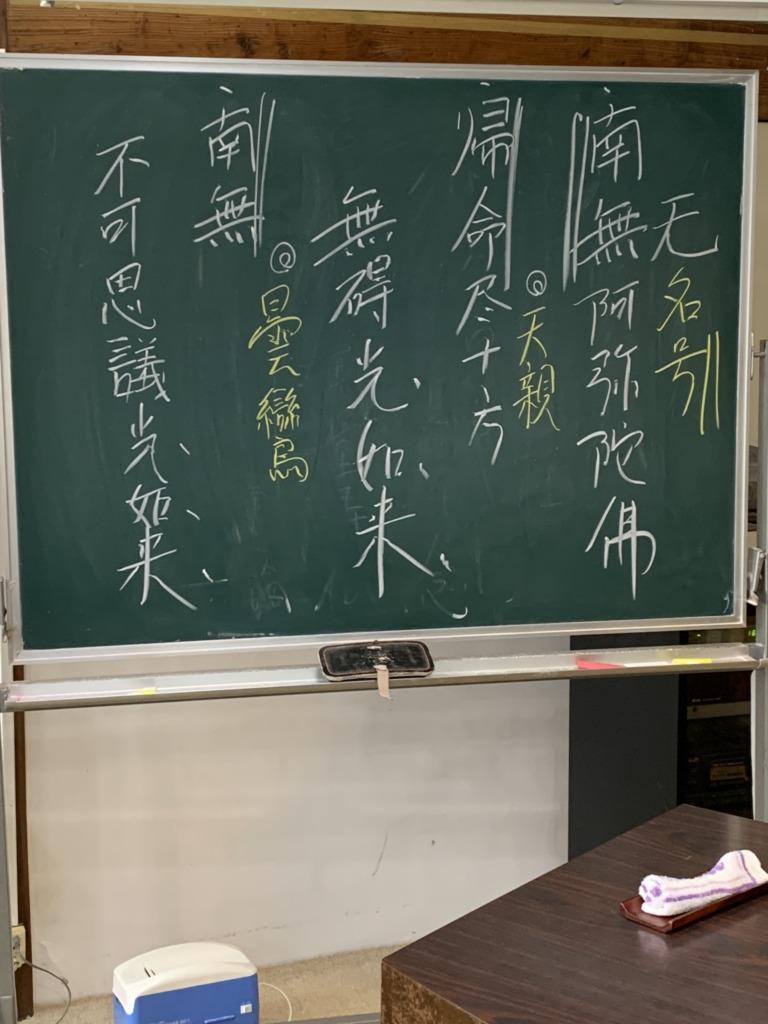 无
名号
南無阿弥陀佛
◎天親
帰命尽十方
無碍光、如、来、
◎曇鸞
南無
不可思議光、如、来、